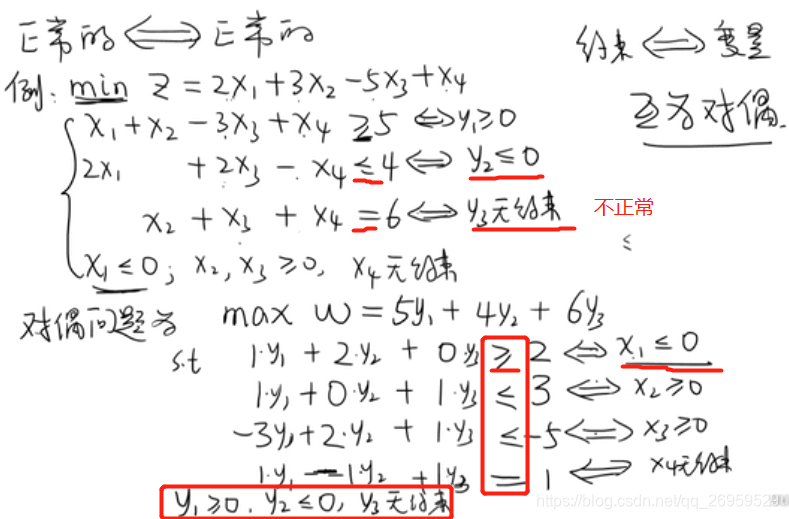 正常的 ⟺ 正常的
约束 ⟺ 变量
互为对偶.
例: min Z = 2x₁ + 3x₂ - 5x₃ + x₄
x₁ + x₂ - 3x₃ + x₄ ≥ 5 ⟺ y₁ ≥ 0
2x₁ + 2x₃ - x₄ ≤ 4 ⟺ y₂ ≤ 0
x₂ + x₃ + x₄ = 6 ⟺ y₃无约束 不正常
≤
x₁ ≤ 0; x₂, x₃ ≥ 0, x₄无约束
对偶问题为 max w = 5y₁ + 4y₂ + 6y₃
s.t 1·y₁ + 2·y₂ + 0·y₃ ≥ 2 ⟺ x₁ ≤ 0
1·y₁ + 0·y₂ + 1·y₃ ≤ 3 ⟺ x₂ ≥ 0
-3y₁ + 2·y₂ + 1·y₃ ≤ -5 ⟺ x₃ ≥ 0
1·y₁ - 1·y₂ + 1y₃ = 1 ⟺ x₄无约束
y₁ ≥ 0, y₂ ≤ 0, y₃无约束